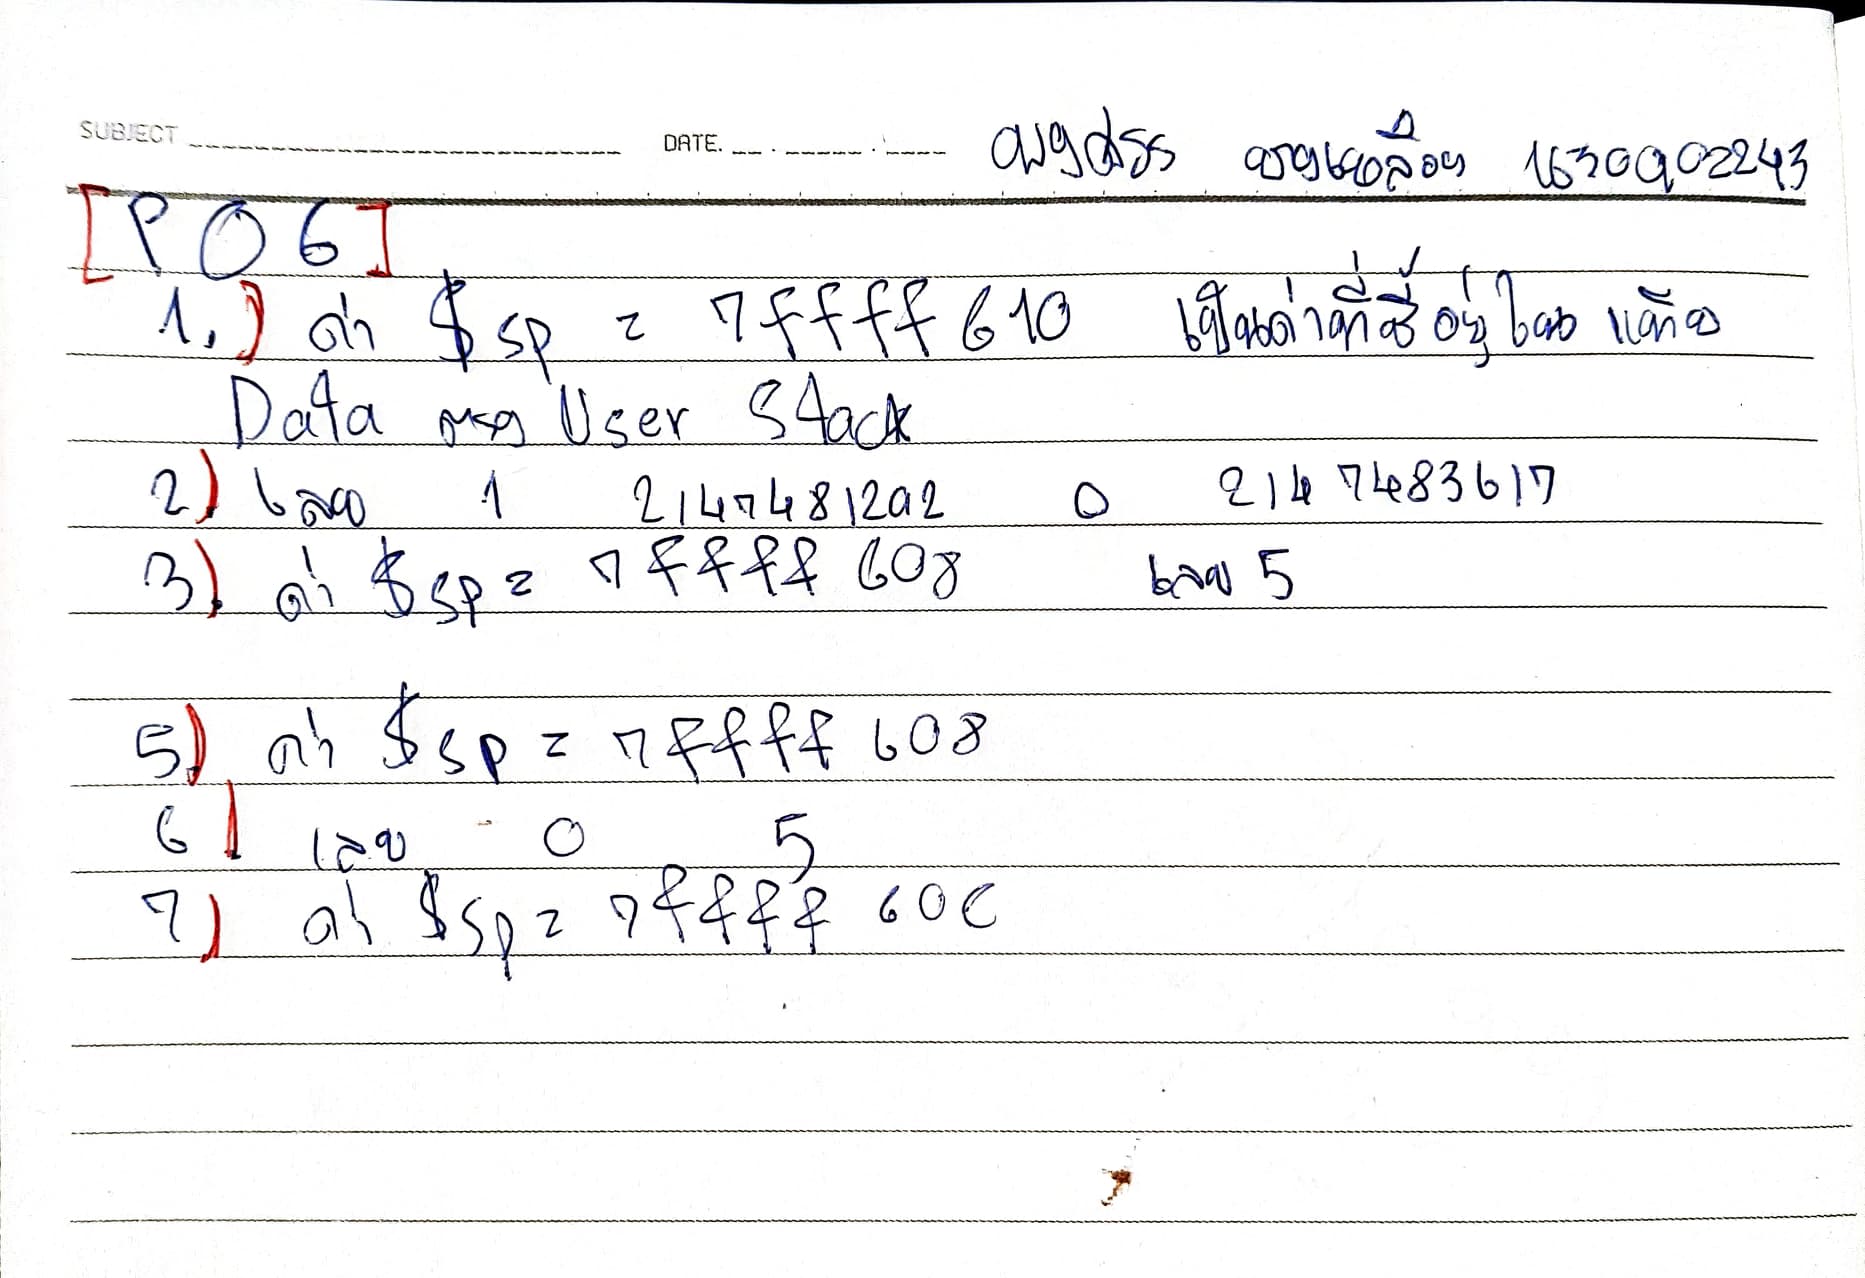 SUBJECT DATE. 1630902243
[P06]
1.) ค่า $sp = 7ffff610 เป็นค่าที่ชี้อยู่ใน แท็บ
Data ตรง User Stack
2) เลข 1 2147481292 0 2147483617
3) ค่า $sp = 7ffff608 เลข 5
5) ค่า $sp = 7ffff608
6) เลข 0 5
7) ค่า $sp = 7ffff60c